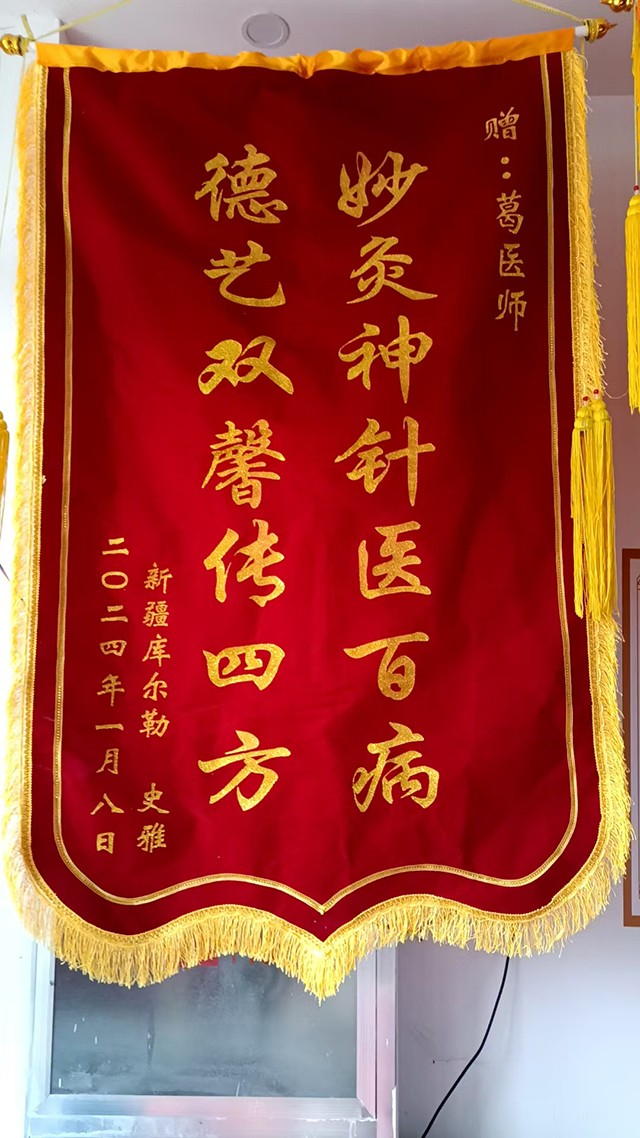 赠：葛医师
妙灸神针医百病
德艺双馨传四方
新疆库尔勒 史雅
二〇二四年一月八日